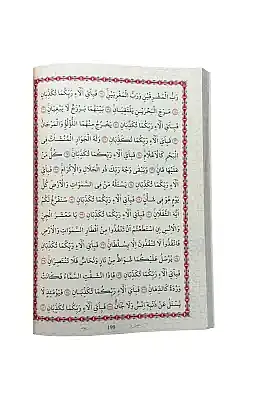 رَبُّ الْمَشْرِقَيْنِ وَرَبُّ الْمَغْرِبَيْنِ ۞ فَبِأَيِّ آلَاءِ رَبِّكُمَا تُكَذِّبَانِ
۞ مَرَجَ الْبَحْرَيْنِ يَلْتَقِيَانِ ۞ بَيْنَهُمَا بَرْزَخٌ لَا يَبْغِيَانِ ۞
فَبِأَيِّ آلَاءِ رَبِّكُمَا تُكَذِّبَانِ ۞ يَخْرُجُ مِنْهُمَا اللُّؤْلُؤُ وَالْمَرْجَانُ
۞ فَبِأَيِّ آلَاءِ رَبِّكُمَا تُكَذِّبَانِ ۞ وَلَهُ الْجَوَارِ الْمُنْشَآتُ فِي
الْبَحْرِ كَالْأَعْلَامِ ۞ فَبِأَيِّ آلَاءِ رَبِّكُمَا تُكَذِّبَانِ ۞ كُلُّ مَنْ
عَلَيْهَا فَانٍ ۞ وَيَبْقَى وَجْهُ رَبِّكَ ذُو الْجَلَالِ وَالْإِكْرَامِ ۞ فَبِأَيِّ
آلَاءِ رَبِّكُمَا تُكَذِّبَانِ ۞ يَسْئَلُهُ مَنْ فِي السَّمَوَاتِ وَالْأَرْضِ كُلَّ
يَوْمٍ هُوَ فِي شَأْنٍ ۞ فَبِأَيِّ آلَاءِ رَبِّكُمَا تُكَذِّبَانِ ۞ سَنَفْرُغُ لَكُمْ
أَيُّهَ الثَّقَلَانِ ۞ فَبِأَيِّ آلَاءِ رَبِّكُمَا تُكَذِّبَانِ ۞ يَا مَعْشَرَ الْجِنِّ
وَالْإِنْسِ إِنِ اسْتَطَعْتُمْ أَنْ تَنْفُذُوا مِنْ أَقْطَارِ السَّمَوَاتِ وَالْأَرْضِ
فَانْفُذُوا لَا تَنْفُذُونَ إِلَّا بِسُلْطَانٍ ۞ فَبِأَيِّ آلَاءِ رَبِّكُمَا تُكَذِّبَانِ
۞ يُرْسَلُ عَلَيْكُمَا شُوَاظٌ مِنْ نَارٍ وَنُحَاسٌ فَلَا تَنْتَصِرَانِ ۞
فَبِأَيِّ آلَاءِ رَبِّكُمَا تُكَذِّبَانِ ۞ فَإِذَا انْشَقَّتِ السَّمَاءُ فَكَانَتْ
وَرْدَةً كَالدِّهَانِ ۞ فَبِأَيِّ آلَاءِ رَبِّكُمَا تُكَذِّبَانِ ۞ فَيَوْمَئِذٍ لَا
يُسْئَلُ عَنْ ذَنْبِهِ إِنْسٌ وَلَا جَانٌّ ۞ فَبِأَيِّ آلَاءِ رَبِّكُمَا تُكَذِّبَانِ